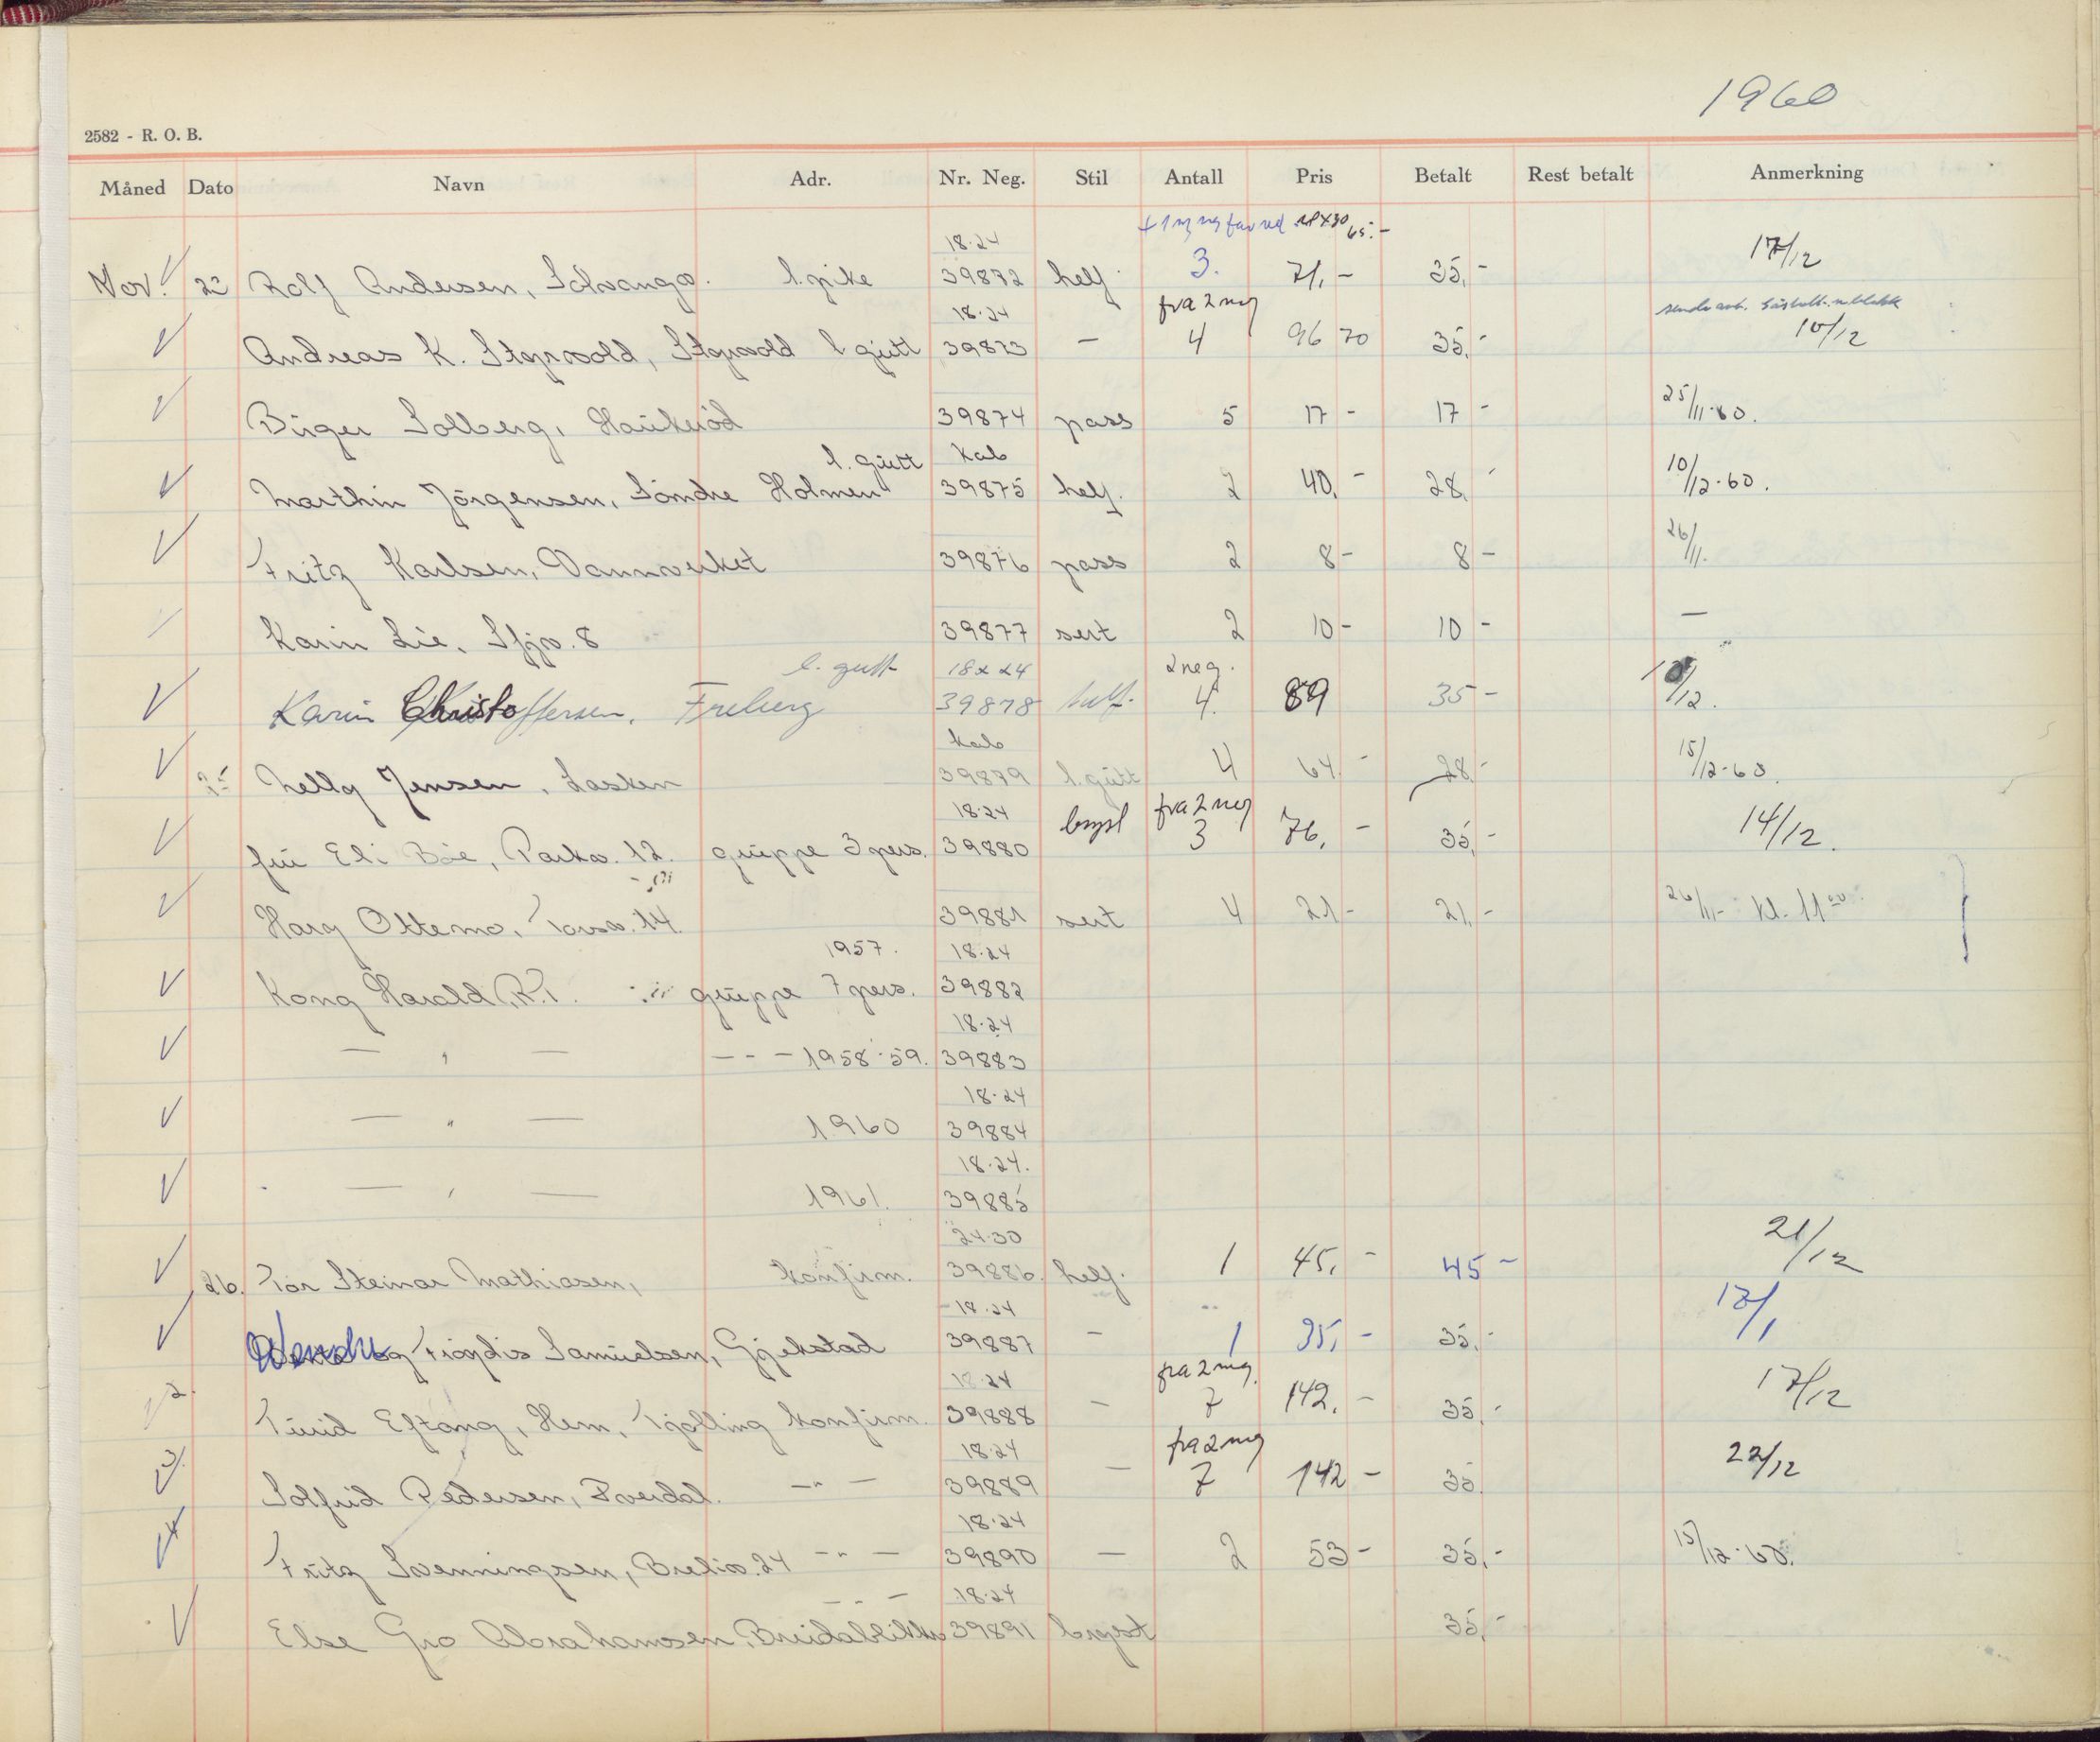 1960
2582 - R. O. B.
Måned Dato Navn Adr. Nr. Neg. Stil Antall Pris Betalt Rest betalt Anmerkning
18x30 65.-
18.24
Nov. 22 Rolf Andersen, l. pike 39872 helf. 3. 71,- 35,- 17/12
18.24 fra 2 neg
Andreas K. l gutt 39873 - 4 96 70 35,- 10/12
Birger Solberg, Haukerød 39874 pass 5 17 - 17 - 25/11.60.
l. gutt Kab
Marthin Jörgensen, Söndre Holmen 39875 helf. 2 40,- 28, 10/12.60.
Fritz Karlsen, Vannverket 39876 pass 2 8- 8- 26/11.
Karin Lie, 8 39877 sert 2 10- 10- -
l. gutt 18x24 2 neg.
Karin Christoffersen, Freberg 39878 helf. 4. 89 35- /12.
Kab
Nelly Jensen, Lasken 39879 l. gutt 4 64,- 28,- 15/12.60.
18.24 fra 2 neg
fru Eli Bøe, Parkv. 12. gruppe 3 pers. 39880 bryst 3 76,- 35,- 14/12.
Harg Ottemo, Torsv. 14. 39881 sert 4 21- 21,- 26/11- kl. 11 00
1957. 18.24
Kong Harald, R.T. gruppe 7 pers. 39882
18.24
— " — - - - 1958-59. 39883
18.24
— " — 1960 39884
18.24.
— " — 1961. 39885
24.30
26. Tor Steinar Mathiasen, konfirm. 39886. helf. 1 45,- 45- 21/12
18.24
Wenche og Frøydis Samuelsen, Gjekstad 39887 - 1 35,- 35,- 12/1
18.24 fra 2 neg.
2. Turid Eftang, Hem, Tjølling konfirm. 39888 - 7 142,- 35,- 17/12
18.24 fra 2 neg
3. Solfrid Pedersen, Fverdal. -"- 39889 - 7 142- 35 22/12
18.24
4 Fritz Svenningsen, Breliv. 24 -"- 39890 - 2 53- 35,- 15/12.60.
- " - 18.24
Else Gro Abrahamsen, Breidablikkv 39891 bryst 35,-